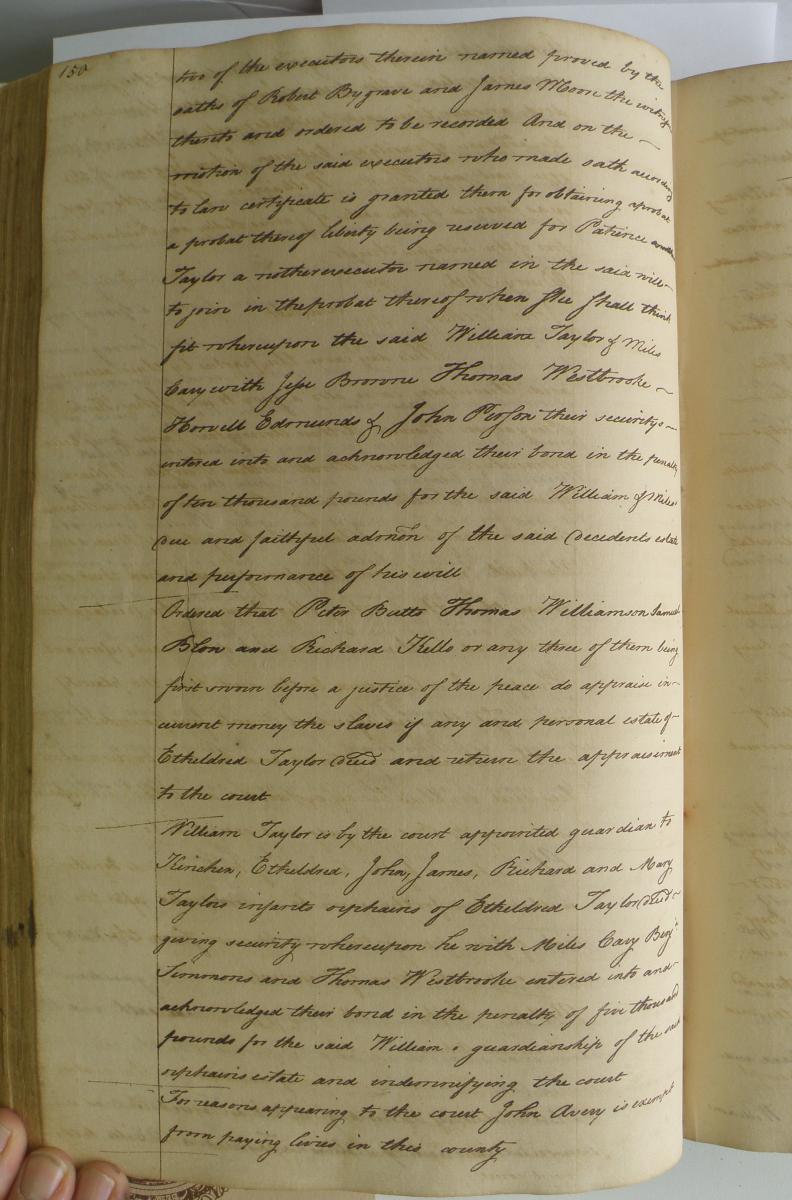 150
two of the executors therein named proved by the
oaths of Robert Bygrave and James Moon the witness
thereto and ordered to be recorded And on the
motion of the said executors who made oath according
to law certificate is granted them for obtaining a probat
a probat thereof liberty being reserved for Patience
Taylor a nother executor named in the said will
to join in the probat thereof when She Shall think
fit whereupon the said William Taylor & Miles
Cary with Jesse Browne Thomas Westbrooke
Howell Edmunds & John Person their securitys
entered into and acknowledged their bond in the penalty
of ten thousand pounds for the said William & Miles'
due and faithful admōn of the said decedents estate
and performance of his will
Ordered that Peter Butts Thomas Williamson Samuel
Blow and Richard Kello or any three of them being
first sworn before a justice of the peace do appraise in
current money the slaves if any and personal estate of
Etheldred Taylor decd and return the appraisement
to the court
William Taylor is by the court appointed guardian to
Kinchen, Etheldred, John, James, Richard and Mary
Taylors infants orphains of Etheldred Taylor decd
giving security whereupon he with Miles Cary Benjn
Simmons and Thomas Westbrooke entered into and
acknowledged their bond in the penalty of five thousand
pounds for the said William . guardianship of the said
orphains estate and indemnifying the court
For reasons appearing to the court John Avery is exempt
from paying levies in this county